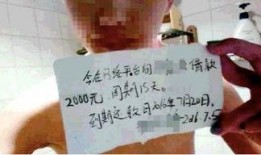 今在网络平台向 借款
2000元，周期15天。
到期还款日2016年7月20日。
2016.7.5